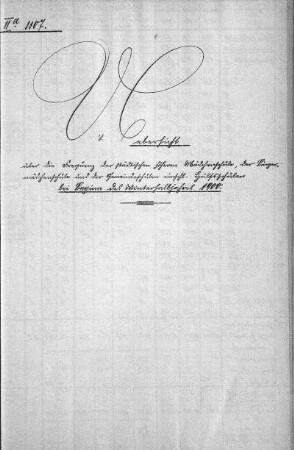 IIa 1187.
Uebersicht
über die Frequenz der städtischen höheren Mädchenschule, der Bürger-
mädchenschule und der Gemeindeschulen einschl. Hülfsschulen
bei Beginn des Winterhalbjahres 1900.